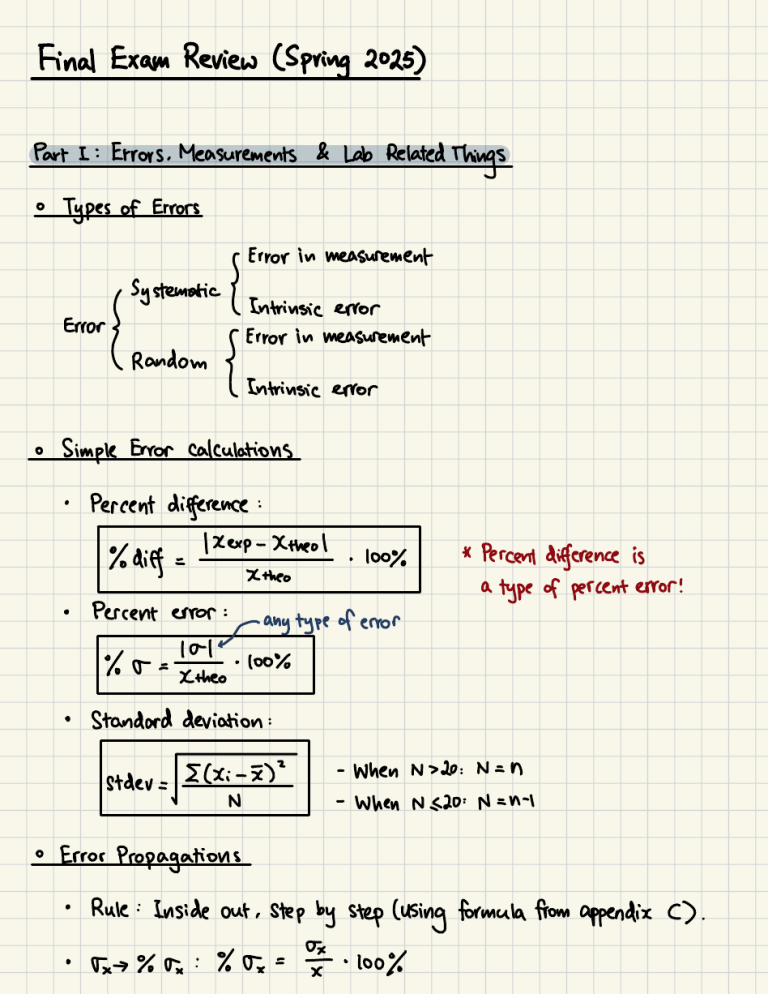 Final Exam Review (Spring 2025)
Part I: Errors, Measurements & Lab Related Things
◦ Types of Errors
Error { Systematic { Error in measurement
Intrinsic error
Random { Error in measurement
Intrinsic error
◦ Simple Error calculations
• Percent difference:
% diff = |x exp − x theo| / x theo · 100%
* Percent difference is
a type of percent error!
• Percent error:
any type of error
% σ = |σ| / x theo · 100%
• Standard deviation:
stdev = √(Σ(xᵢ − x̄)² / N)
- When N > 20: N = n
- When N ≤ 20: N = n-1
◦ Error Propagations
• Rule: Inside out, step by step (using formula from appendix C).
• σₓ → % σₓ : % σₓ = σₓ / x · 100%